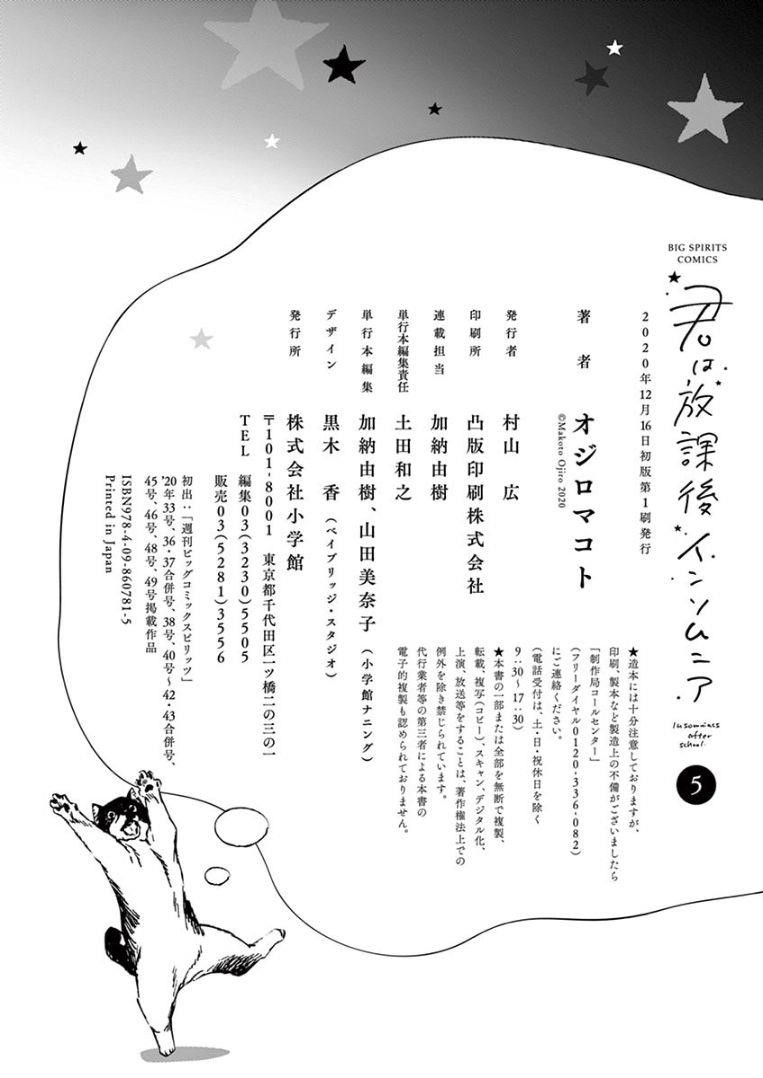 BIG SPIRITS
COMICS
君は放課後インソムニア
Insomniacs
after
school
5
2020年12月16日初版第1刷発行
著者
オジロマコト
©Makoto Ojiro 2020
発行者
村山 広
印刷所
凸版印刷株式会社
連載担当
加納由樹
単行本編集責任
土田和之
単行本編集
加納由樹、山田美奈子(小学館ナニング)
デザイン
黒木 香(ベイブリッジ・スタジオ)
発行所
株式会社小学館
〒101-8001 東京都千代田区一ツ橋二の三の一
TEL 編集03(3230)5505
販売03(5281)3556
初出:「週刊ビッグコミックスピリッツ」
'20年33号、36・37合併号、38号、40号〜42・43合併号、
45号、46号、48号、49号掲載作品
ISBN978-4-09-860781-5
Printed in Japan
★造本には十分注意しておりますが、
印刷、製本など製造上の不備がございましたら
「制作局コールセンター」
(フリーダイヤル0120-336-082)
にご連絡ください。
(電話受付は、土・日・祝休日を除く
9:30〜17:30)
★本書の一部または全部を無断で複製、
転載、複写(コピー)、スキャン、デジタル化、
上演、放送等をすることは、著作権法上での
例外を除き禁じられています。
代行業者等の第三者による本書の
電子的複製も認められておりません。